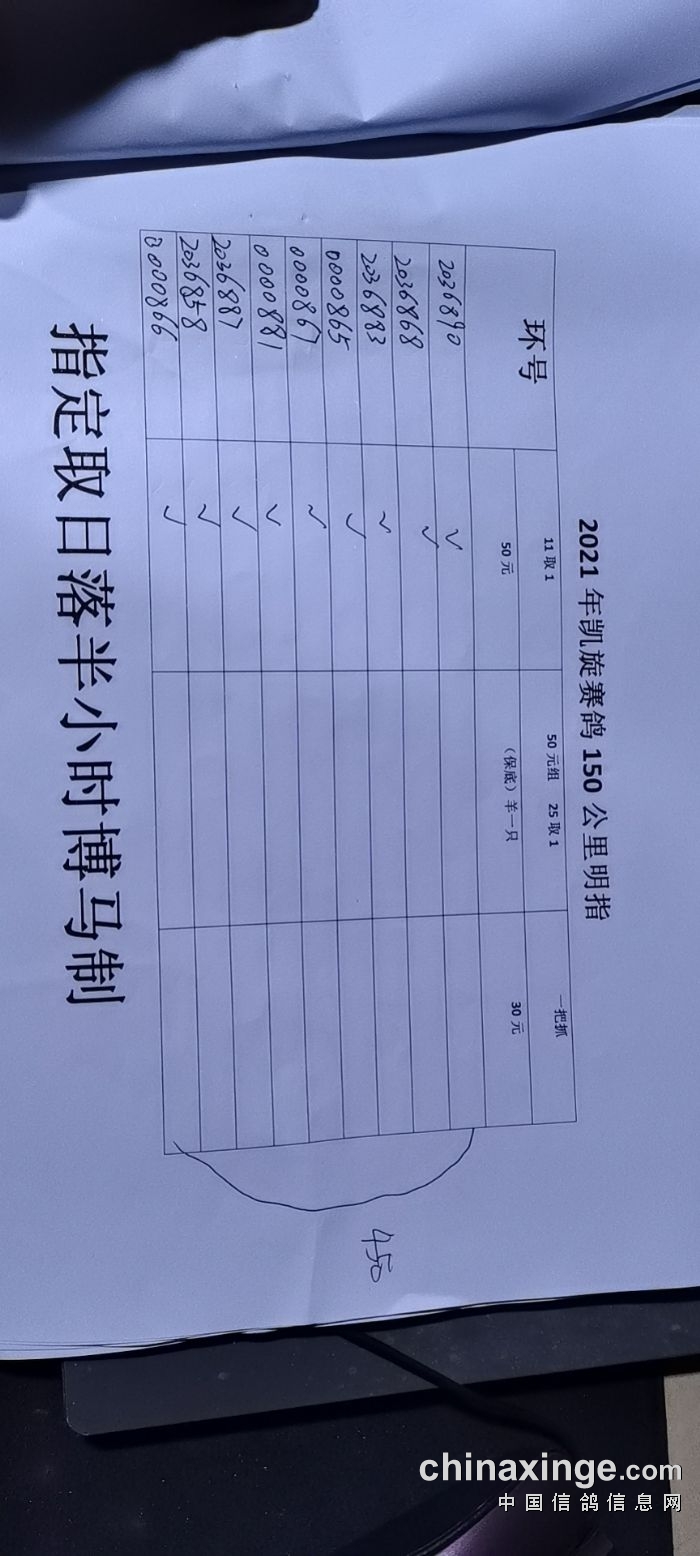 2021 年凯旋赛鸽 150 公里明指
环号 11 取 1 50 元组 25 取 1 一把抓
50 元 （保底）羊一只 30 元
2036890 ✓
2036868 ✓
2036883 ✓
0000865 ✓
0000867 ✓
0000881 ✓
2036887 ✓
2036858 ✓
0000866 ✓
450
指定取日落半小时博马制
chinaxinge.com
中国信鸽信息网